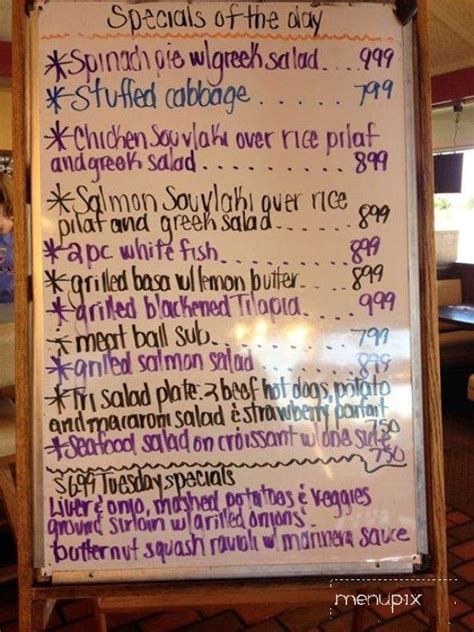 Specials of the day
*Spinach pie w/greek salad....999
*Stuffed cabbage......799
*Chicken Souvlaki over rice pilaf
and greek salad.........899
*Salmon Souvlaki over rice
pilaf and greek salad.....899
*2pc white fish........899
*grilled basa w/lemon butter...899
*grilled blackened Tilapia...999
*meat ball sub..........799
*grilled salmon salad......899
*Tri salad plate: 2 beef hot dogs, potato
and macaroni salad & strawberry parfait
750
*Seafood salad on croissant w/one side
750
$6.99 Tuesday specials
Liver & onio, mashed potatoes & veggies
ground sirloin w/grilled onions.
butternut squash ravioli w/ mannera sauce
menupix